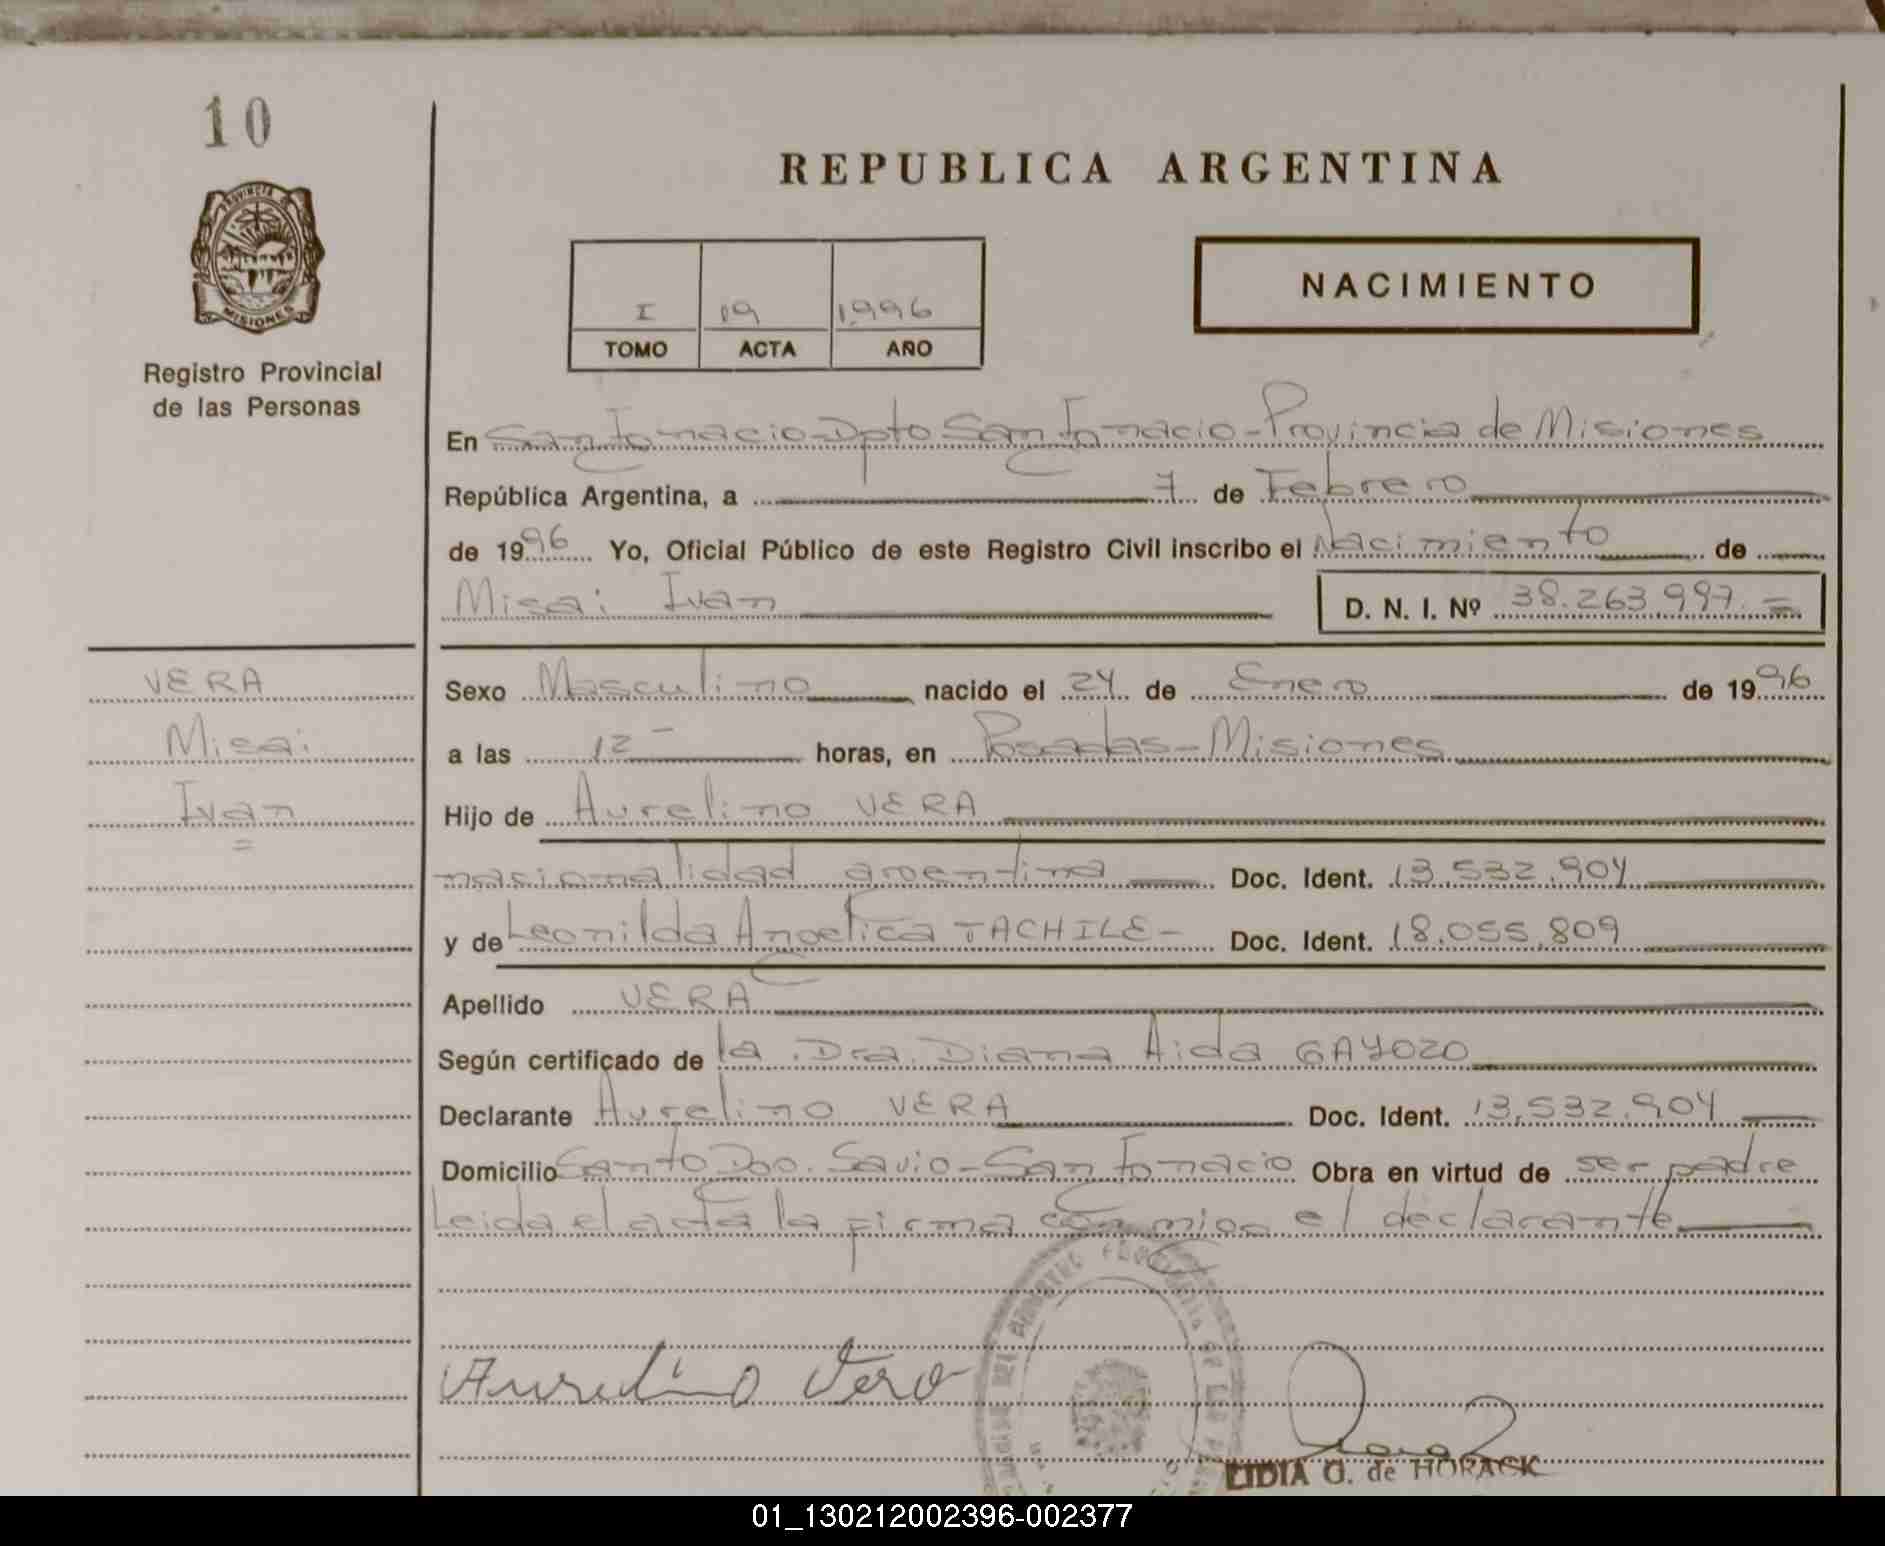 10
REPUBLICA ARGENTINA
PROVINCIA DE
MISIONES
Registro Provincial
de las Personas
I 19 1.996
TOMO ACTA AÑO
NACIMIENTO
En San Ignacio-Dpto San Ignacio-Provincia de Misiones
República Argentina, a 7 de Febrero
de 1996 Yo, Oficial Público de este Registro Civil inscribo el Nacimiento de
Misai Ivan
D. N. I. Nº 38.263.997.=
VERA
Misai
Ivan
=
Sexo Masculino nacido el 24 de Enero de 1996
a las 12- horas, en Posadas-Misiones
Hijo de Aurelino VERA
nacionalidad argentina Doc. Ident. 13.532.904
y de Leonilda Angelica TACHILE- Doc. Ident. 18.055.809
Apellido VERA
Según certificado de la Dra. Diana Aida GAYOZO
Declarante Aurelino VERA Doc. Ident. 13.532.904
Domicilio Santo Dgo. Savio-San Ignacio Obra en virtud de ser padre
Leida el acta la firma conmigo el declarante
Aurelino Vera
LIDIA G. de HORACK
01_130212002396-002377